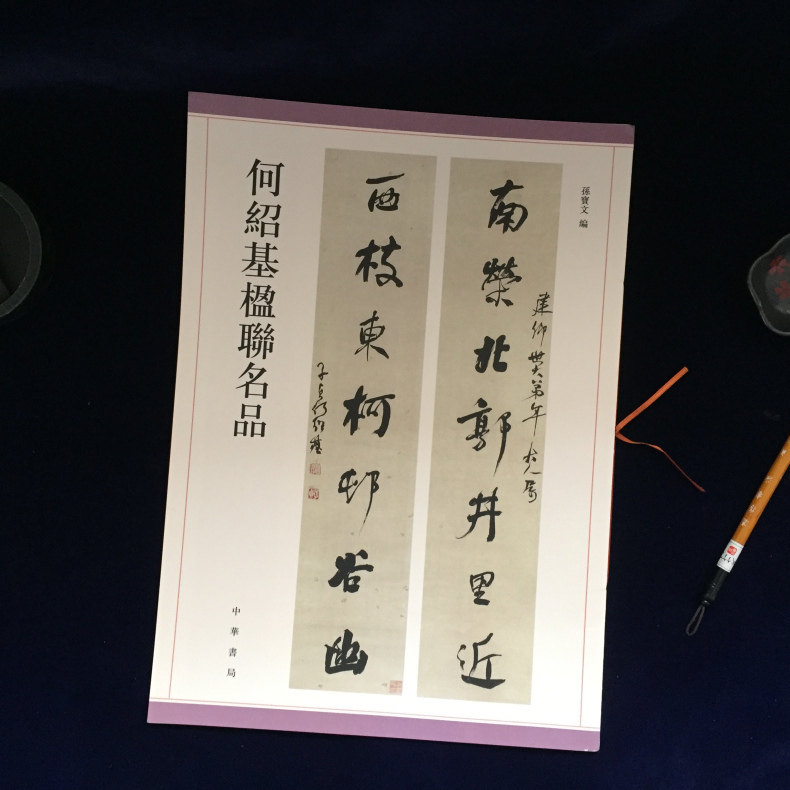 何紹基楹聯名品
孫寶文 編
南榮北郭井里近
建卿世大弟年大人屬
西枝東柯邨谷幽
子貞何紹基
中華書局